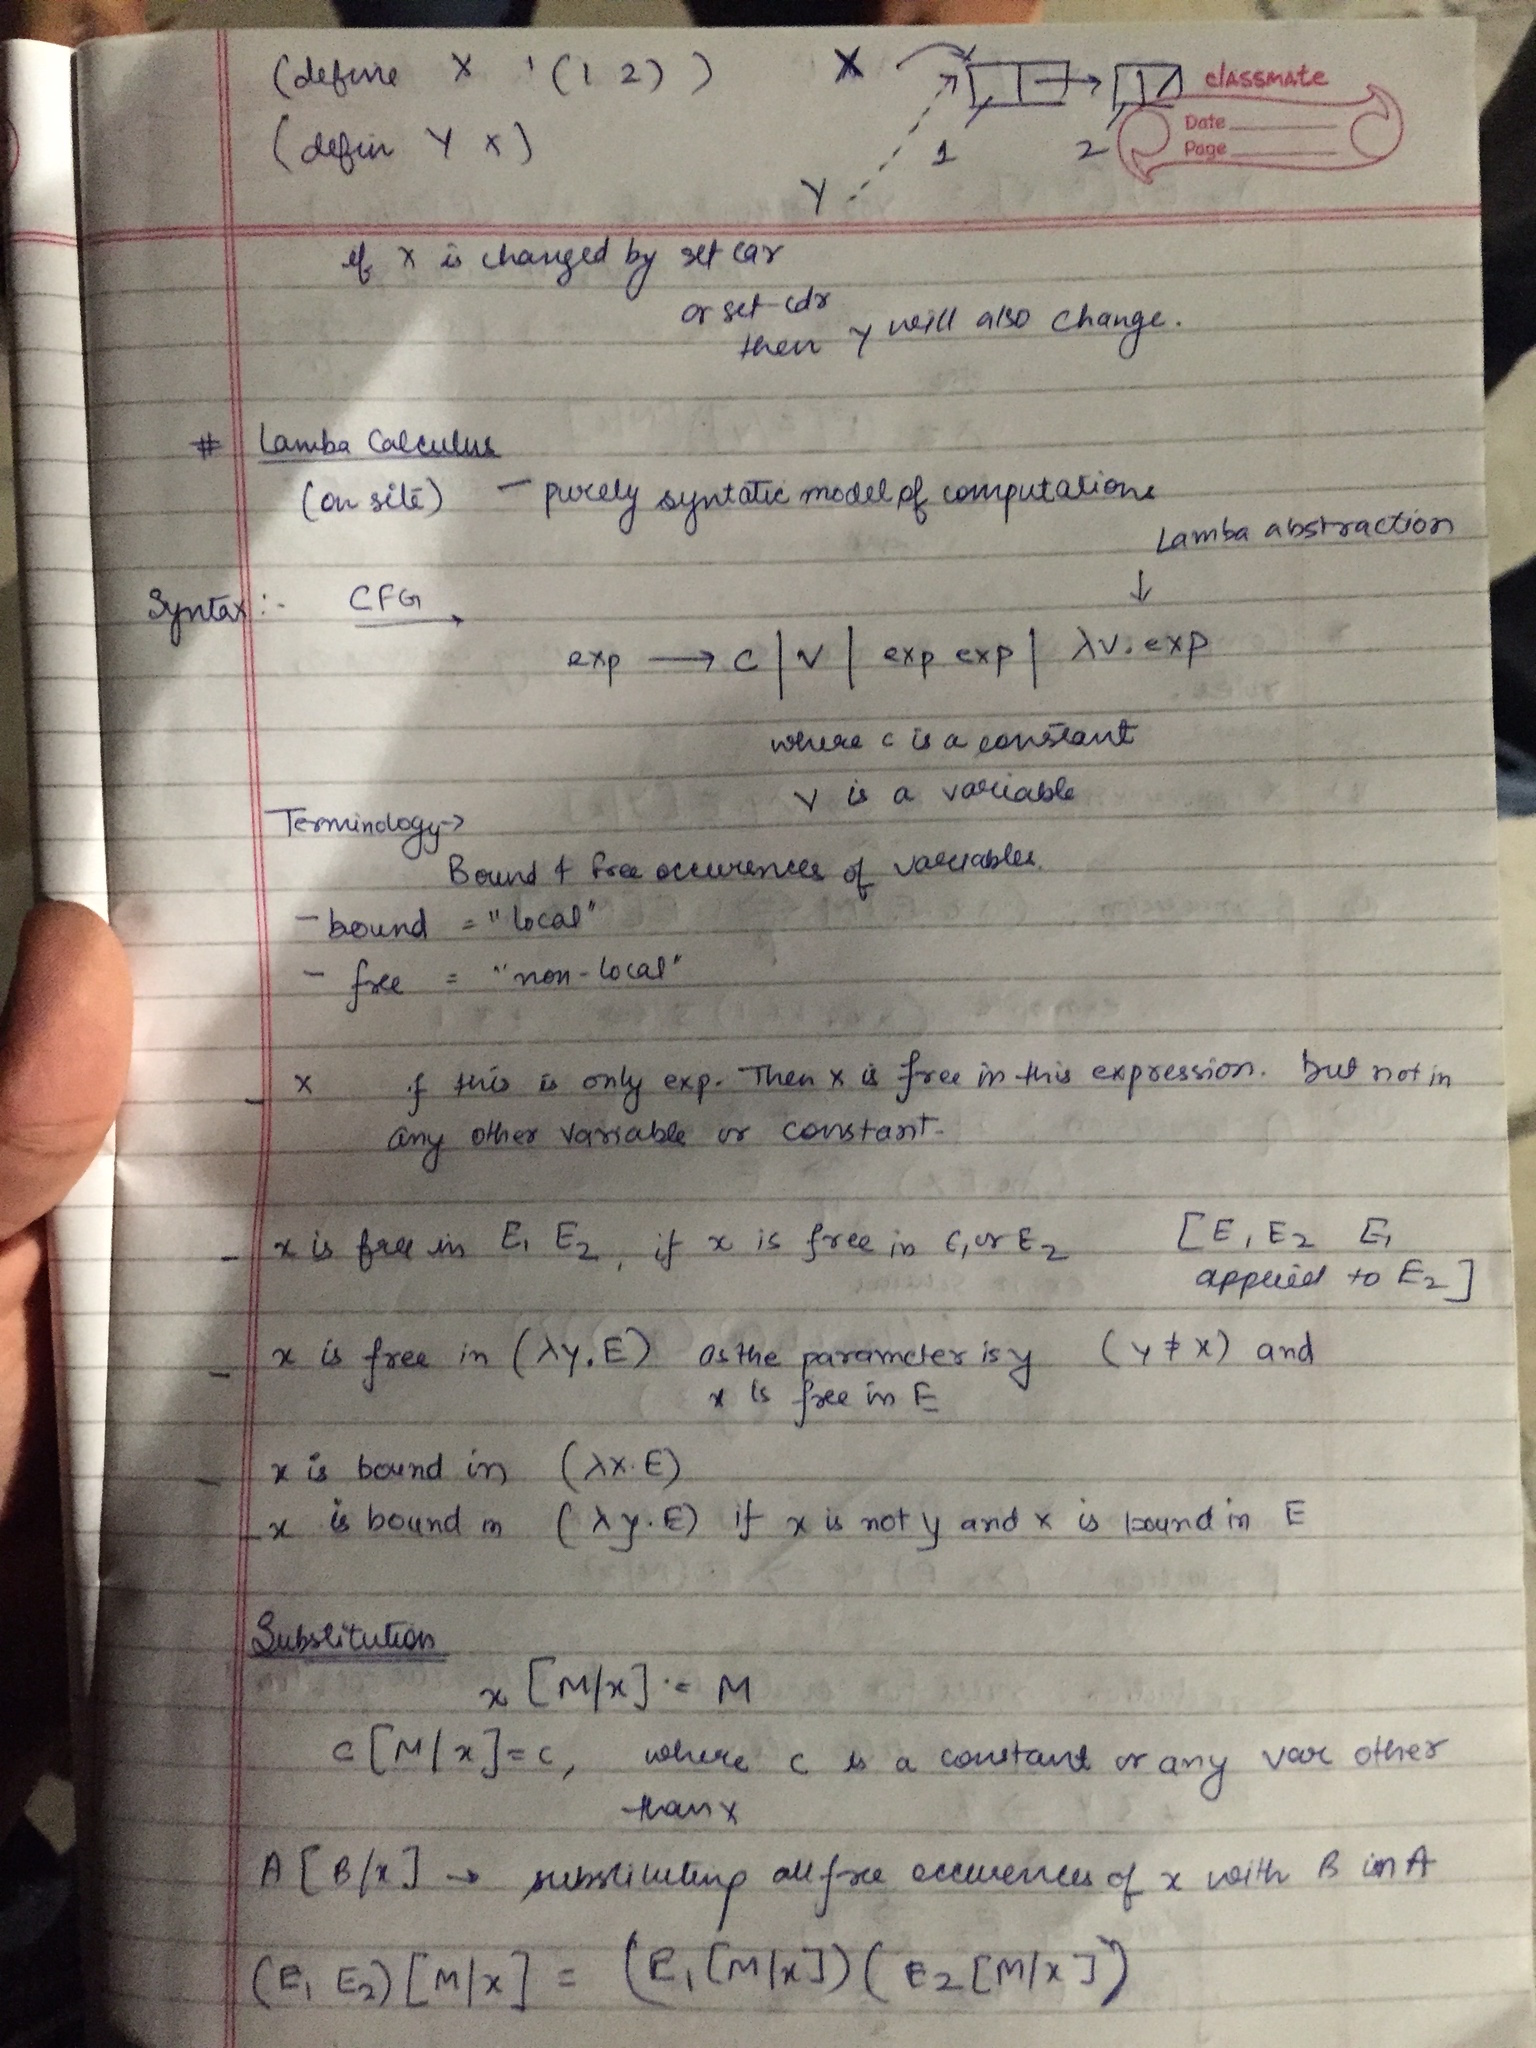 (define X '(1 2))
(defin Y X)
X
1
2
Y
classmate
Date
Page
if X is changed by set car
or set-cdr
then Y will also change.
# Lamba Calculus
(on site) - purely syntatic model of computations
Lamba abstraction
↓
Syntax:- CFG →
exp → c | v | exp exp | λv. exp
where c is a constant
v is a variable
Terminology→
Bound & free occurences of variables.
- bound = "local"
- free = "non-local"
- x if this is only exp. Then x is free in this expression. but not in
any other variable or constant.
- x is free in E1 E2, if x is free in E1 or E2 [E1 E2 E1
applied to E2]
- x is free in (λy.E) as the parameter is y (y ≠ x) and
x is free in E
- x is bound in (λx.E)
- x is bound in (λy.E) if x is not y and x is bound in E
Substitution
x [M/x] = M
c [M/x] = c, where c is a constant or any var other
than x
A [B/x] → substituting all free occurences of x with B in A
(E1 E2) [M/x] = (E1 [M/x]) (E2 [M/x])